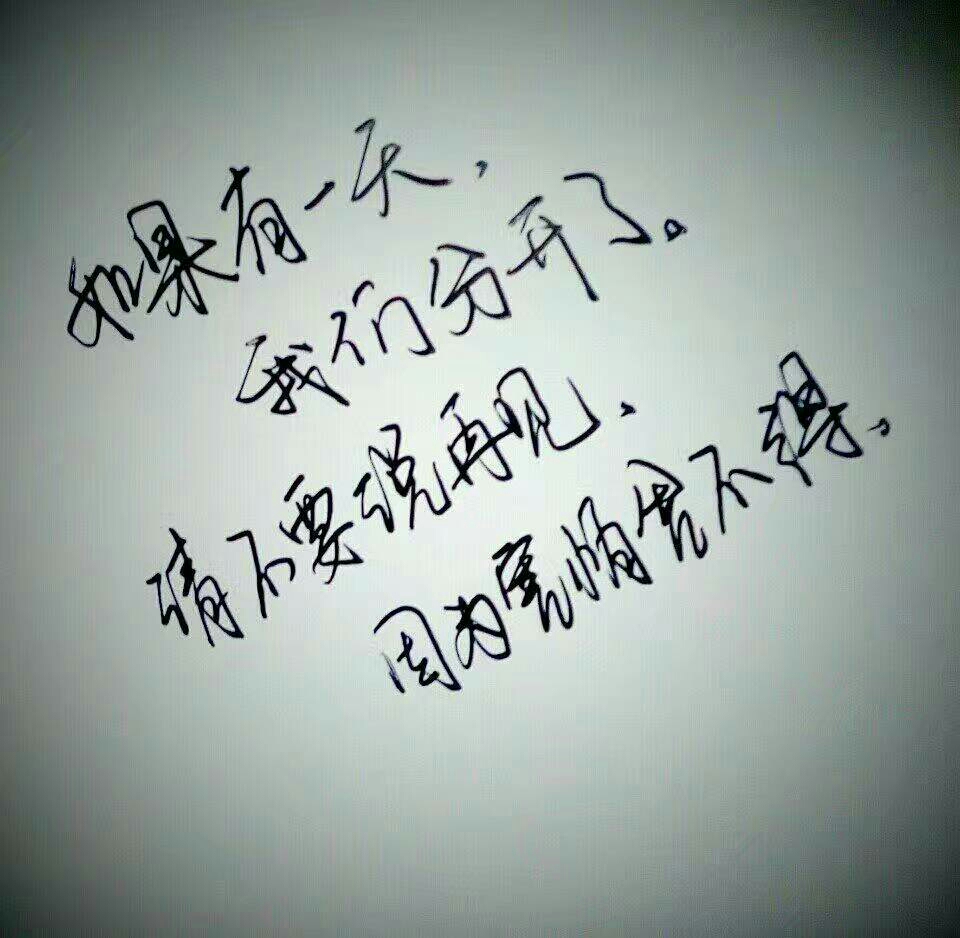 如果有一天,
我们分开了。
请不要说再见,
因为害怕舍不得。